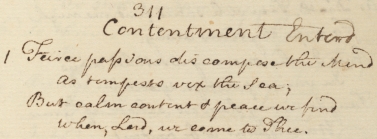 311
Contentment Enterd
1 Feirce passions discompose the Mind
As tempests vex the Sea;
But calm content & peace we find
When, Lord, we come to Thee.